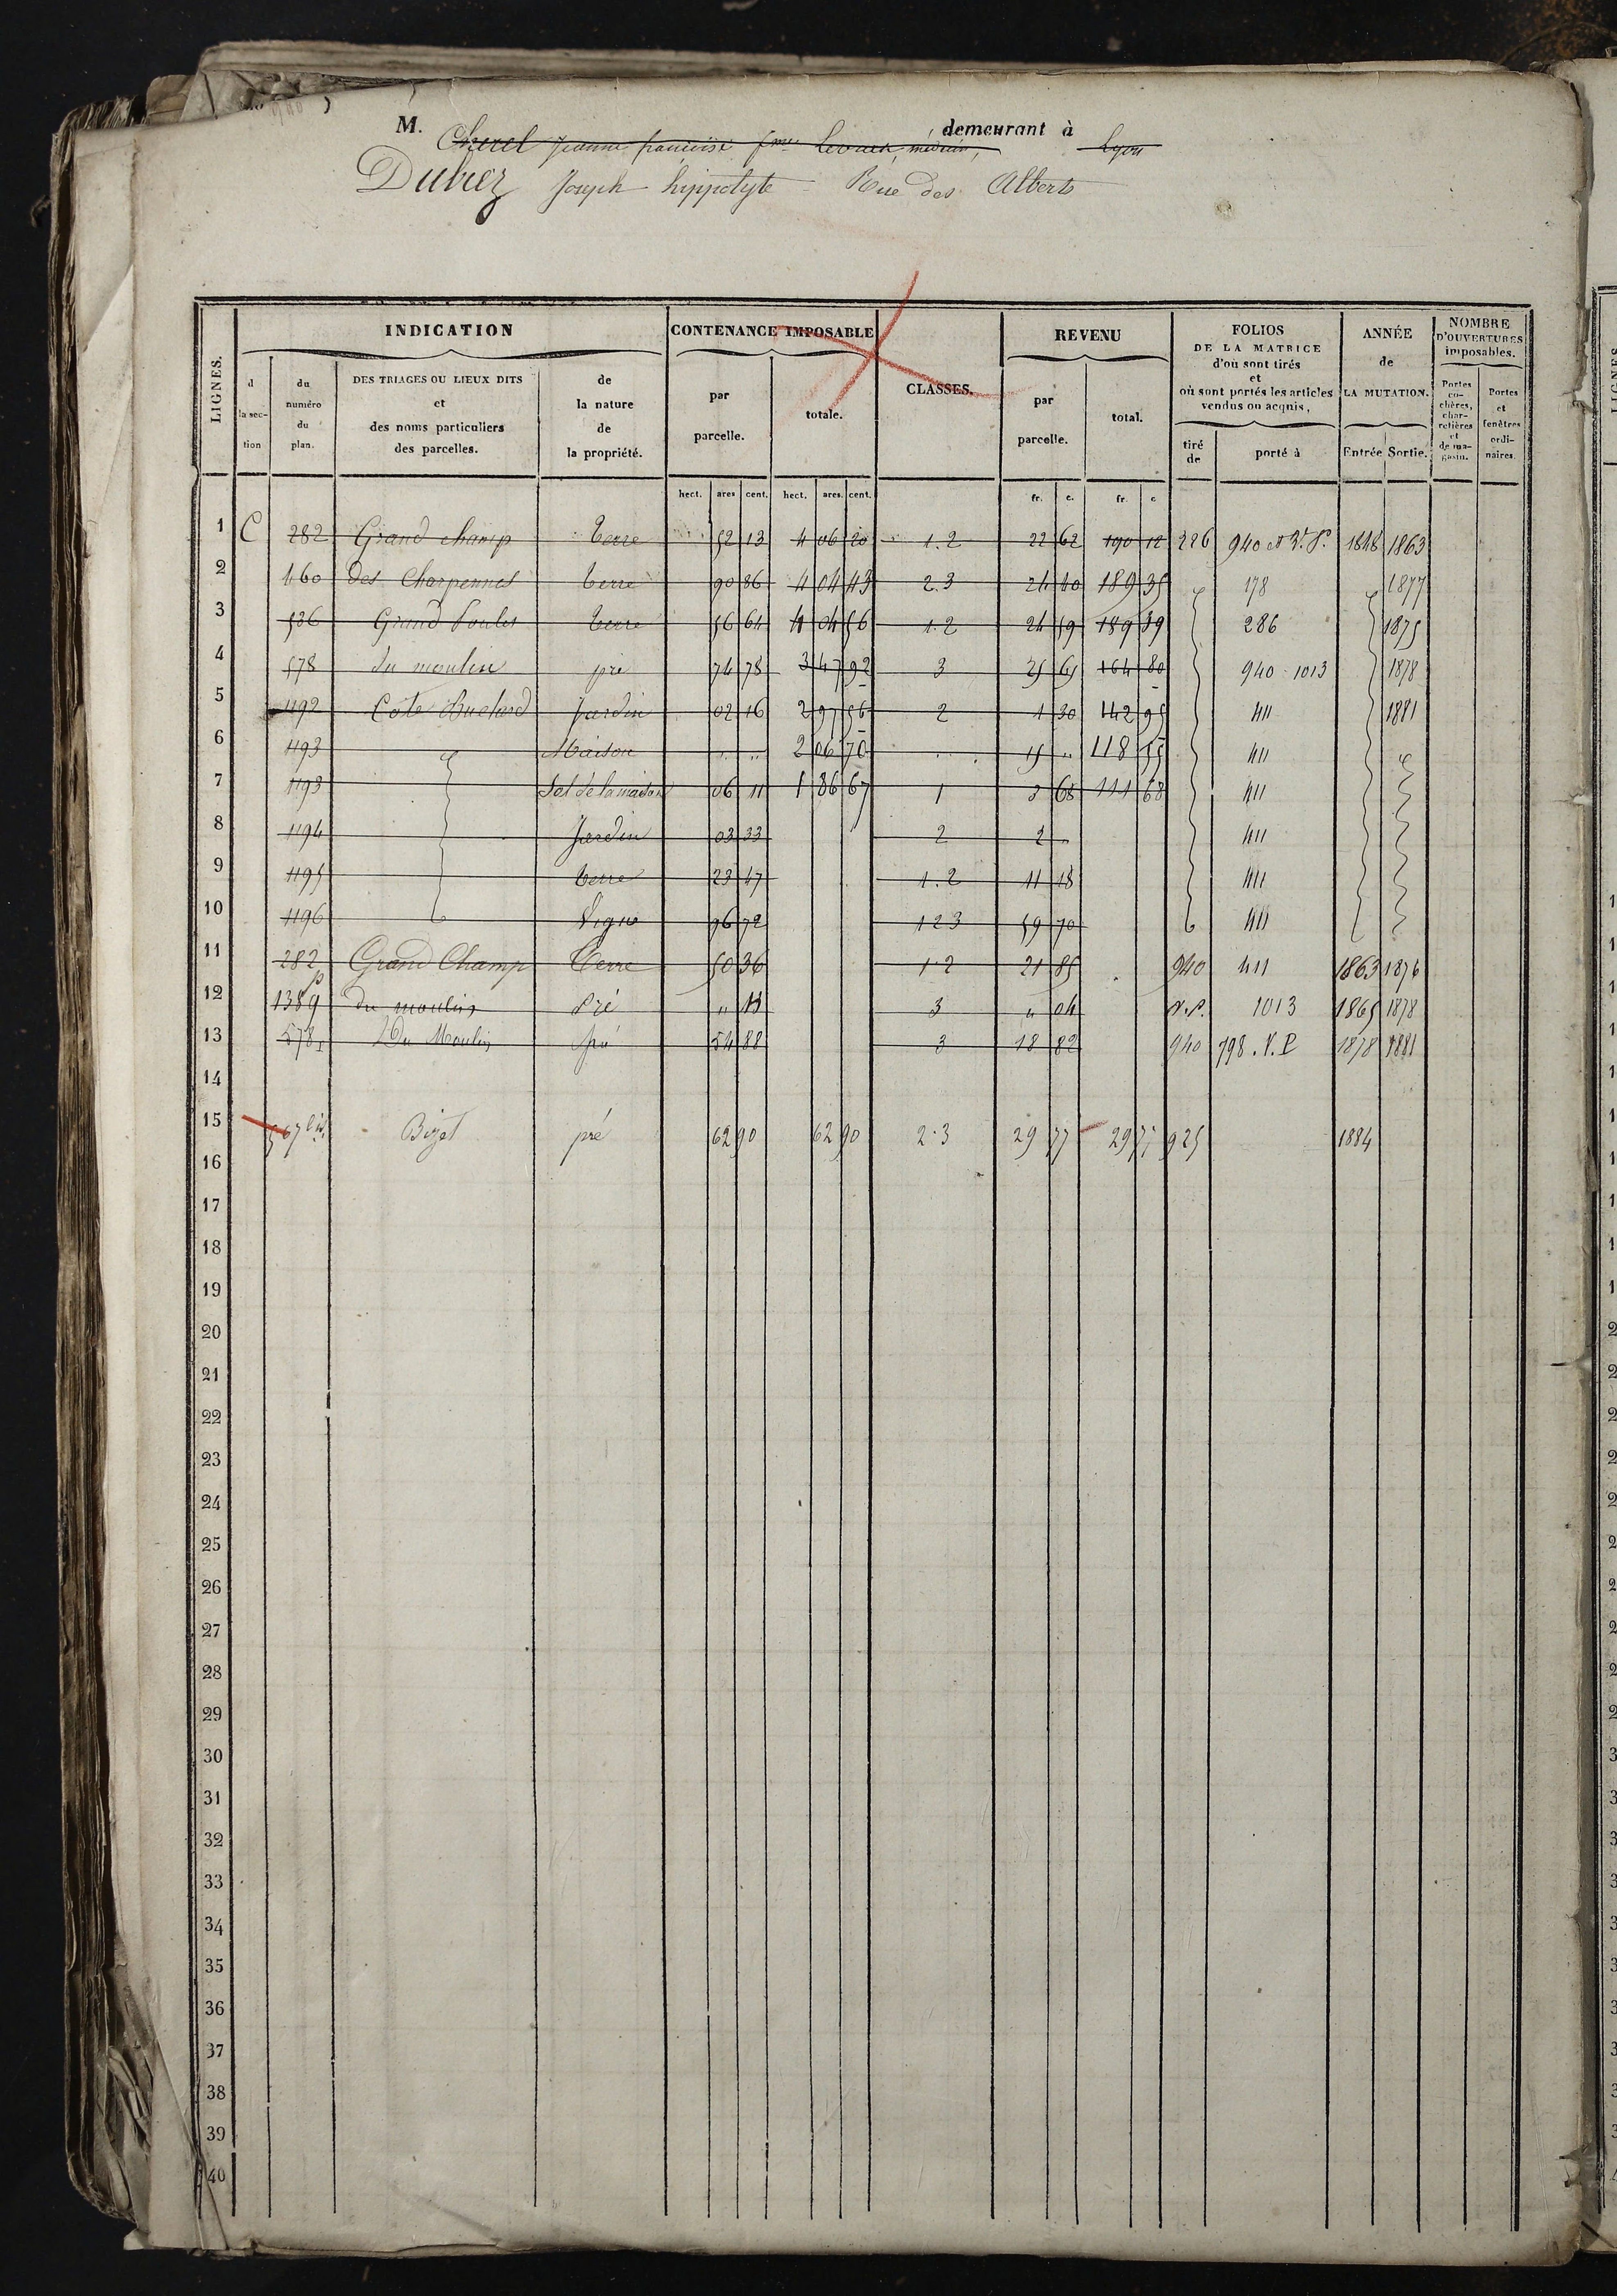 M. Cherel Jeanne françoise fme médecin, demeurant à Lyon
Dubiez Joseph hippolyte Rue des Alberts
LIGNES. INDICATION CONTENANCE IMPOSABLE CLASSES. REVENU FOLIOS DE LA MATRICE d'où sont tirés et où sont portés les articles vendus ou acquis, ANNÉE de LA MUTATION. NOMBRE D'OUVERTURES imposables.
d la section du numéro du plan. DES TRIAGES OU LIEUX DITS et des noms particuliers des parcelles. de la nature de la propriété. par parcelle. totale. par parcelle. total. tiré de porté à Entrée Sortie. Portes cochères, charretières et de magasin. Portes et fenêtres ordinaires.
hect. ares cent. hect. ares. cent. fr. c. fr. c
1 C 282 Grand champ terre 52 13 4 06 20 1.2 22 62 190 12 226 940 et 1848 1863
2 460 des Charpennes terre 90 86 4 04 43 2.3 24 40 189 35 178 1877
3 536 Grand terre 56 64 4 04 56 1.2 24 59 189 39 286 1875
4 578 du moulin pré 74 78 3 47 92 3 25 65 164 80 940 - 1013 1878
5 1192 Cote Buclard Jardin 02 16 2 97 56 2 1 30 142 95 411 1881
6 1193 Maison " " 2 06 70 15 " 118 55 411
7 1193 Sol de la maison 06 11 1 86 67 1 3 68 111 68 411
8 1194 Jardin 03 33 2 2 " 411
9 1195 terre 23 47 1.2 11 18 411
10 1196 Vigne 96 72 1 2 3 59 70 411
11 282 p Grand Champ Terre 50 36 1.2 21 85 940 411 1863 1876
12 1389 du moulin Pré " 13 3 " 04 1013 1865 1878
13 578 Du Moulin pré 54 88 3 18 82 940 798. V. P 1878 1881
14
15 567 bis Bizet pré 62 90 62 90 2.3 29 77 29 77 925 1884
16
17
18
19
20
21
22
23
24
25
26
27
28
29
30
31
32
33
34
35
36
37
38
39
40